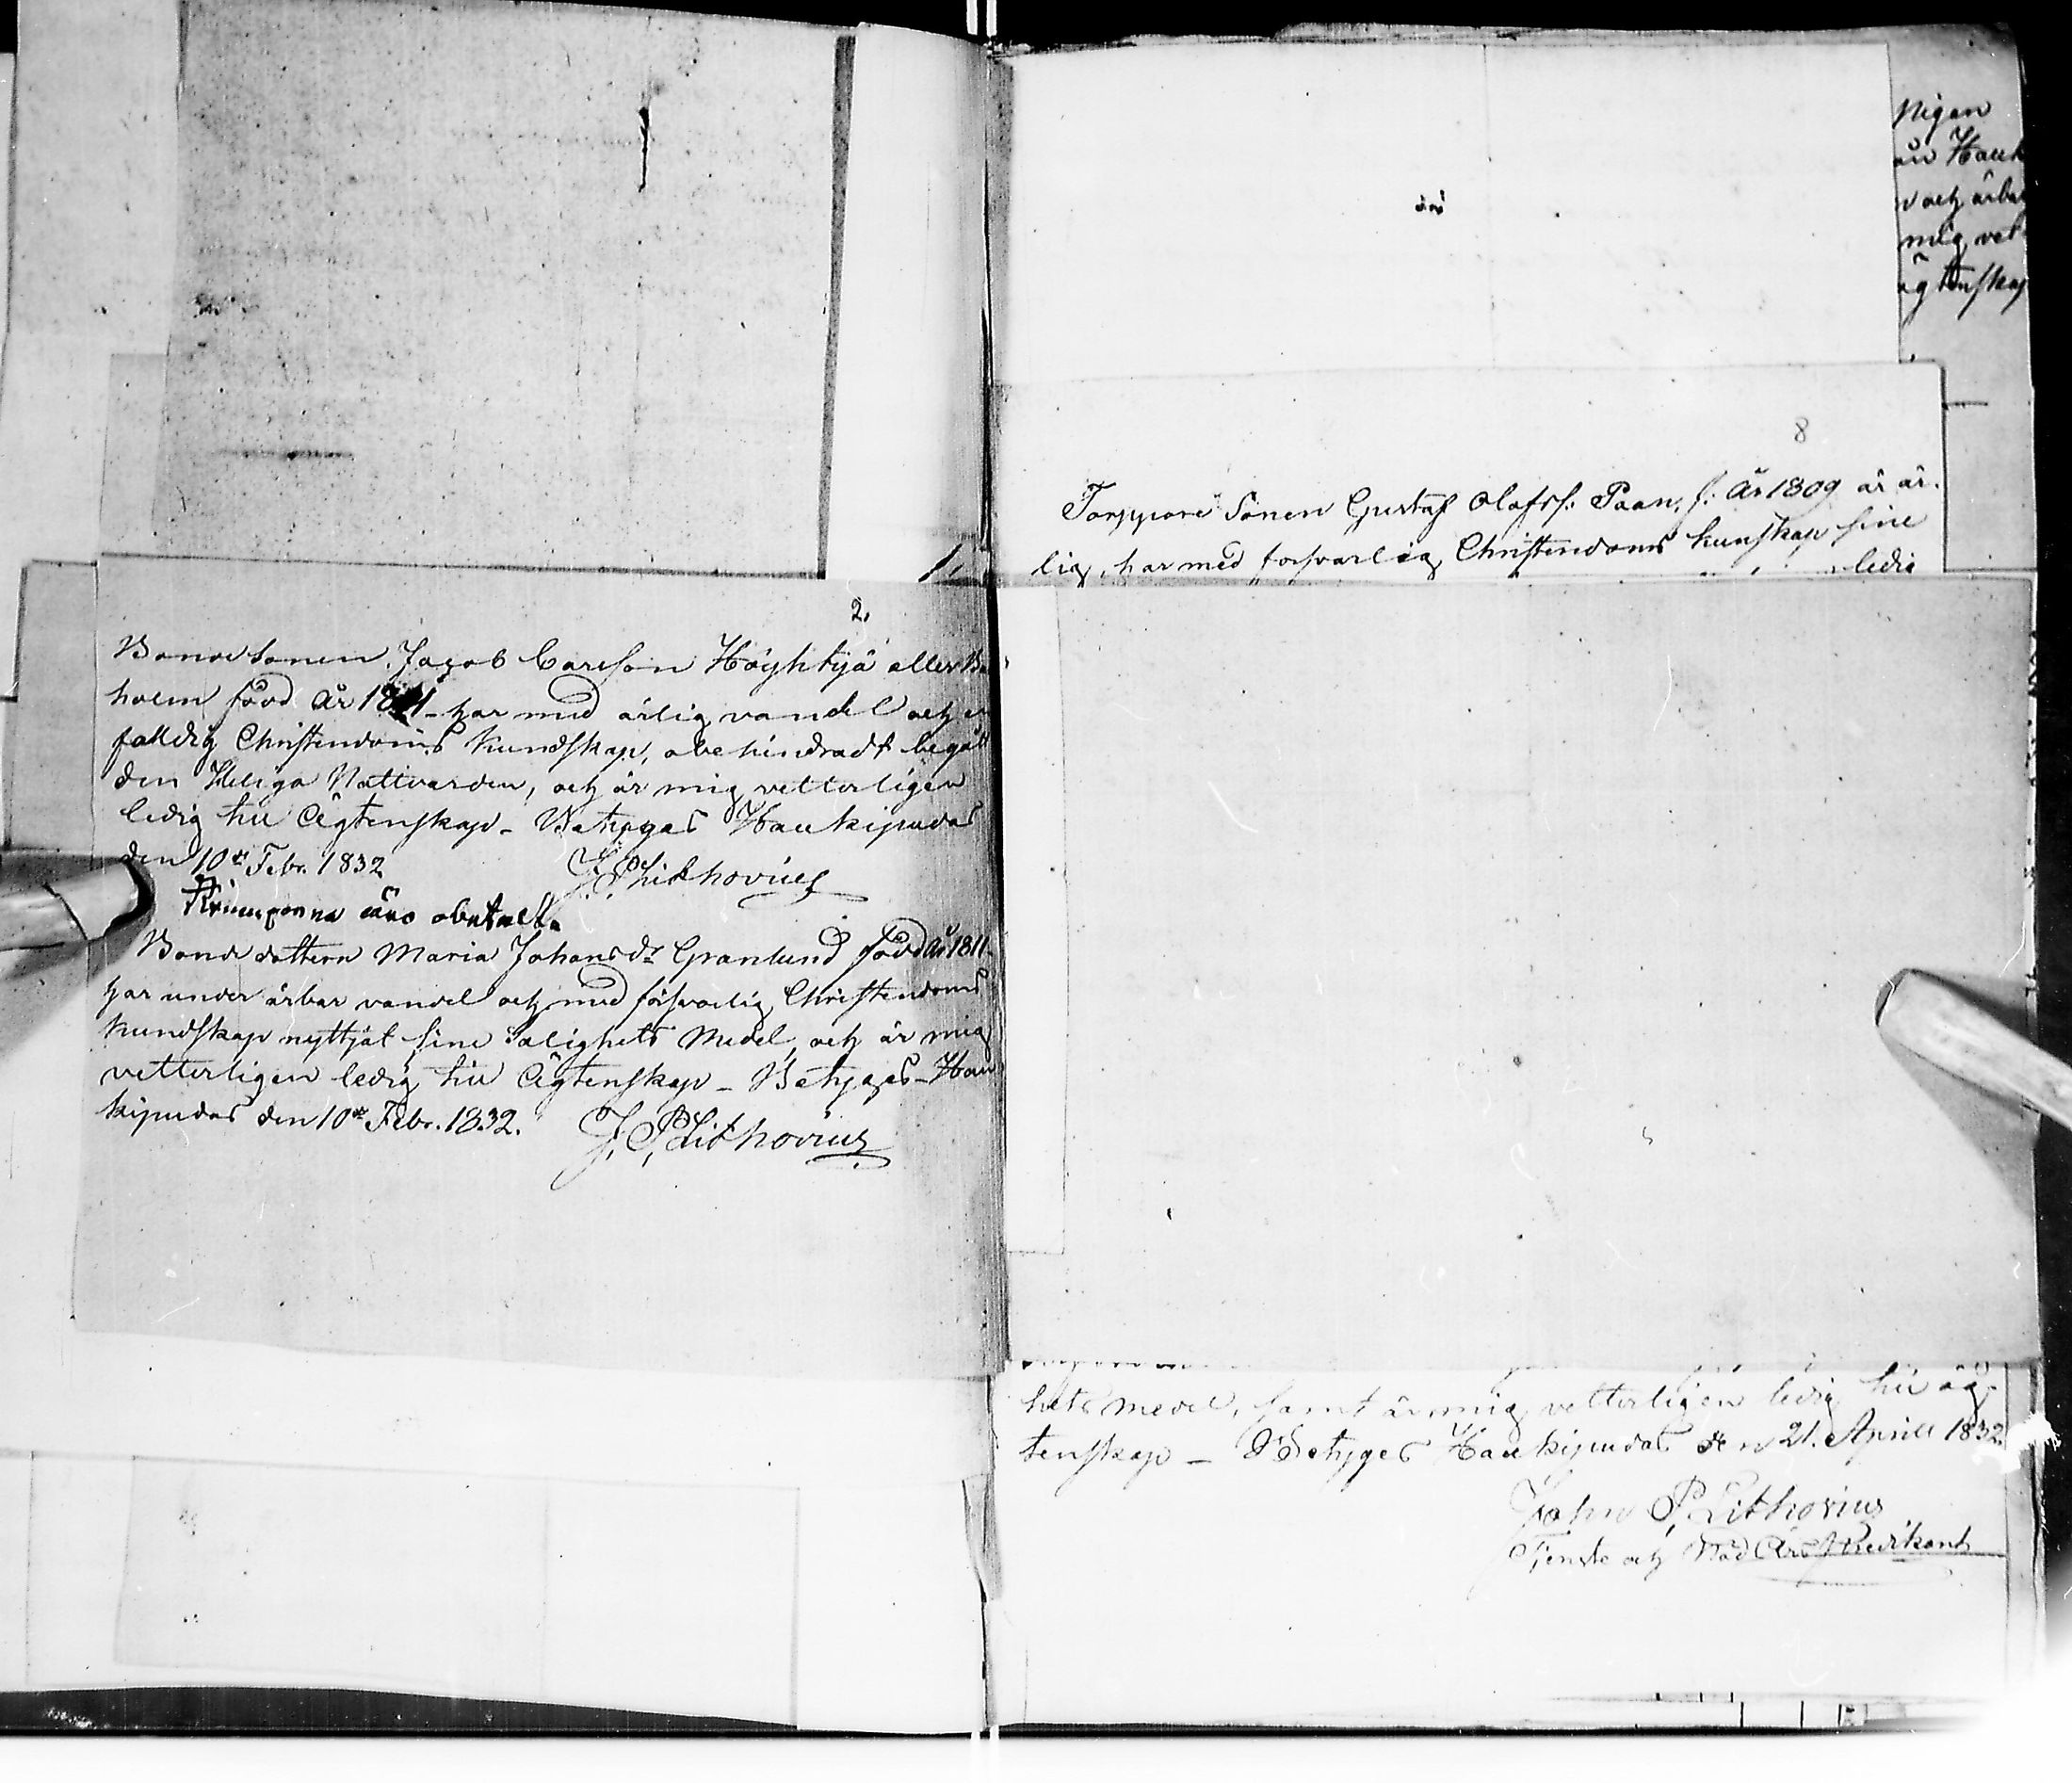 1,
2,
Bondesonen Jacob Carlson Höyhtyä eller
holm född År 1811 har med ärlig vandel och
faldig Christendoms Kundskap, obehindradt begått
den Heliga Nattvarden, och är mig vetterligen
ledig till Ägtenskap - Betygas Haukipudas
den 10de Febr. 1832 J. P. Lithovius
äro obetalta
Bonde dottern Maria Johansdr Granlund född År 1811
har under ärbar vandel och med försvarlig Christendoms
kundskap nyttjat sine Salighets Medel, och är mig
vetterligen ledig till Ägtenskap - Betygas - Hau
kipudas den 10de Febr. 1832. J. P. Lithovius
Pigan
än Hauk
och ärbar
mig vet
ägtenskap
8
Torppare Sonen Gustaf Olofss: Paan, f: År 1809 är är-
lig, har med försvarlig Christendoms kunskap sine
ledig
hets medel, samt är mig vetterligen ledig till äg-
tenskap - Betyges Haukipudas den 21. April 1832.
John P. Lithovius
Tjenste och Nåd Års Predikant